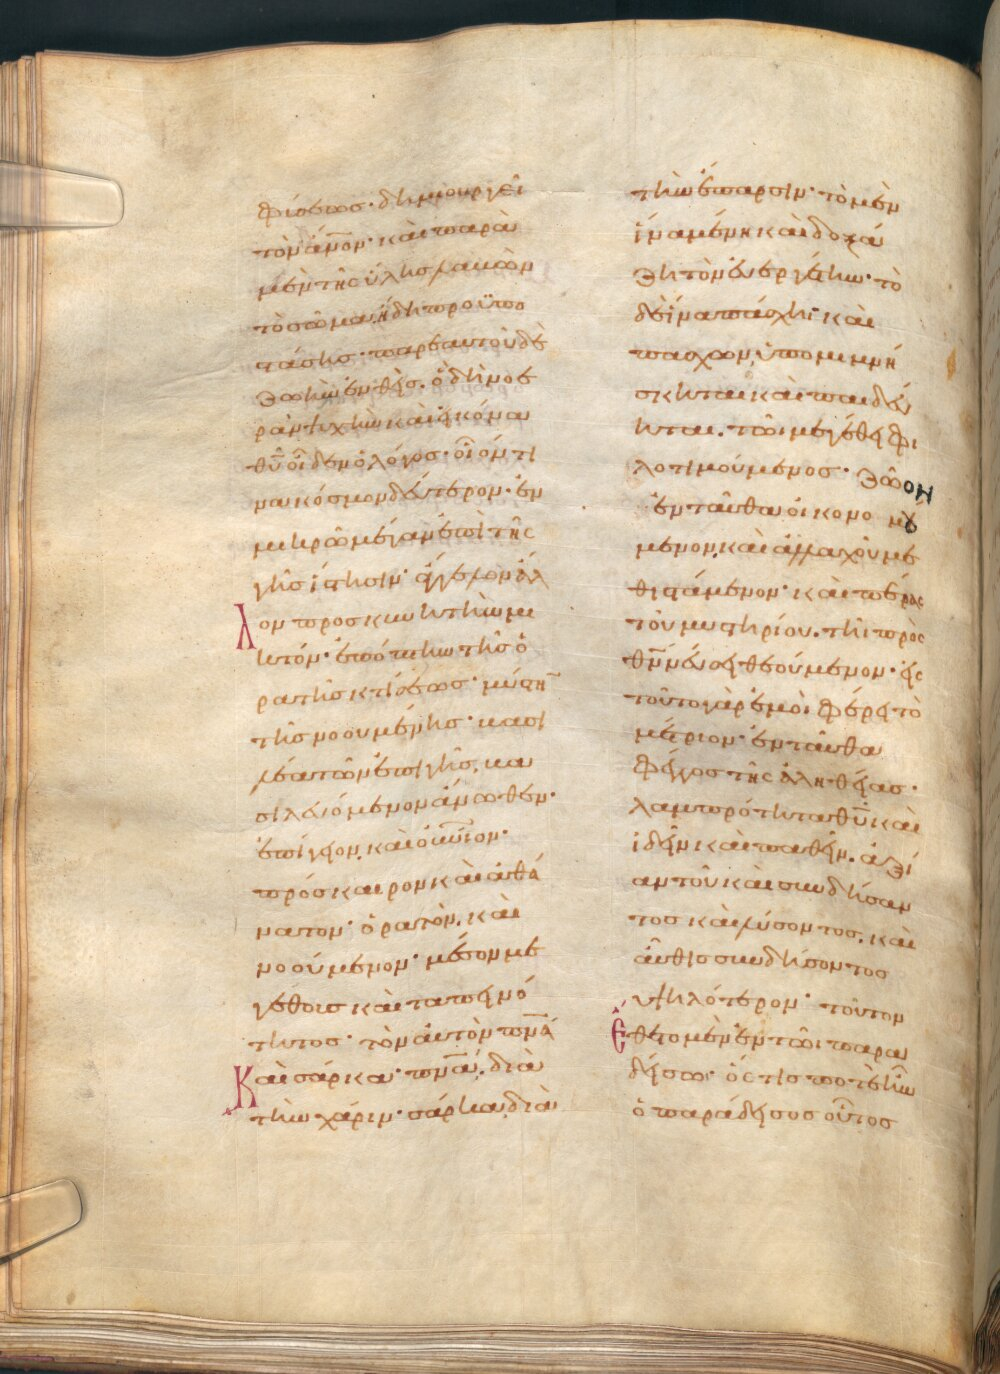 φύσεως· δημιουργεῖ
τὸν ἄν̅ο̅ν· καὶ παρὰ
μὲν τῆς ὕλης λαβὼν
τὸ σῶμα ἤδη προϋπο
στάσης· παρεαυτοῦ δὲ
ζωὴν ἐνθείς. ὃ δὴ νοε
ρὰν ψυχὴν καὶ εἰκόνα
θ̅υ̅ οἶδεν ὁ λόγος· οἷόν τι
να κόσμον δεύτερον· ἐν
μικρῶ μέγαν ἐπὶ τῆς
γῆς ἵστησιν· ἄγγελον ἄλλ
ον προσκυνητὴν μι
κτόν· ἐπόπτην τῆς ὁ
ρατῆς κτίσεως· μύστη̅
τῆς νοουμένης· βασι
λέα τῶν ἐπιγῆς, βα
σιλευόμενον ἄνωθεν·
ἐπίγειον, καὶ οὐν̅ιον·
πρόσκαιρον καὶ ἀθά
νατον· ὁρατὸν, καὶ
νοούμενον· μέσον με
γέθους καὶ ταπεινό
τητος· τὸν αὐτὸν π̅ν̅α̅
Καὶ σάρκα· π̅ν̅α̅, διὰ
τὴν χάριν· σάρκα, διὰ
τὴν ἔπαρσιν· τὸ μὲν
ἵνα μένη καὶ δοξά
ζη τὸν εὐεργέτην· τὸ
δὲ ἵνα πάσχη· καὶ
πάσχων, ὑπομιμνή
σκηται καὶ παιδεύ
ηται. τῶι μεγέθει φι
λοτιμούμενος· ζῶον
ἐνταῦθα οἰκονομού
μενον, καὶ ἀλλαχοῦ με
θιστάμενον· καὶ πέρας
τοῦ μυστηρίου. τῆι πρὸς
θ̅ν̅ νεύσει θεούμενον· εἰς
τοῦτο γὰρ ἐμοὶ φέρει τὸ
μέτριον ἐνταῦθα
φέγγος τῆς ἀληθείας·
λαμπρότητα θ̅υ̅ καὶ
ἰδεῖν καὶ παθεῖν. ἀξί
αν τοῦ καὶ συνδήσαν
τος καὶ λύσοντος, καὶ
αὖθις συνδήσοντος
ὑψηλότερον· τοῦτον
ἔθετο μὲν ἐν τῶι παρα
δείσω· ὅς τις ποτὲ ἦν
ὁ παράδεισος οὗτος